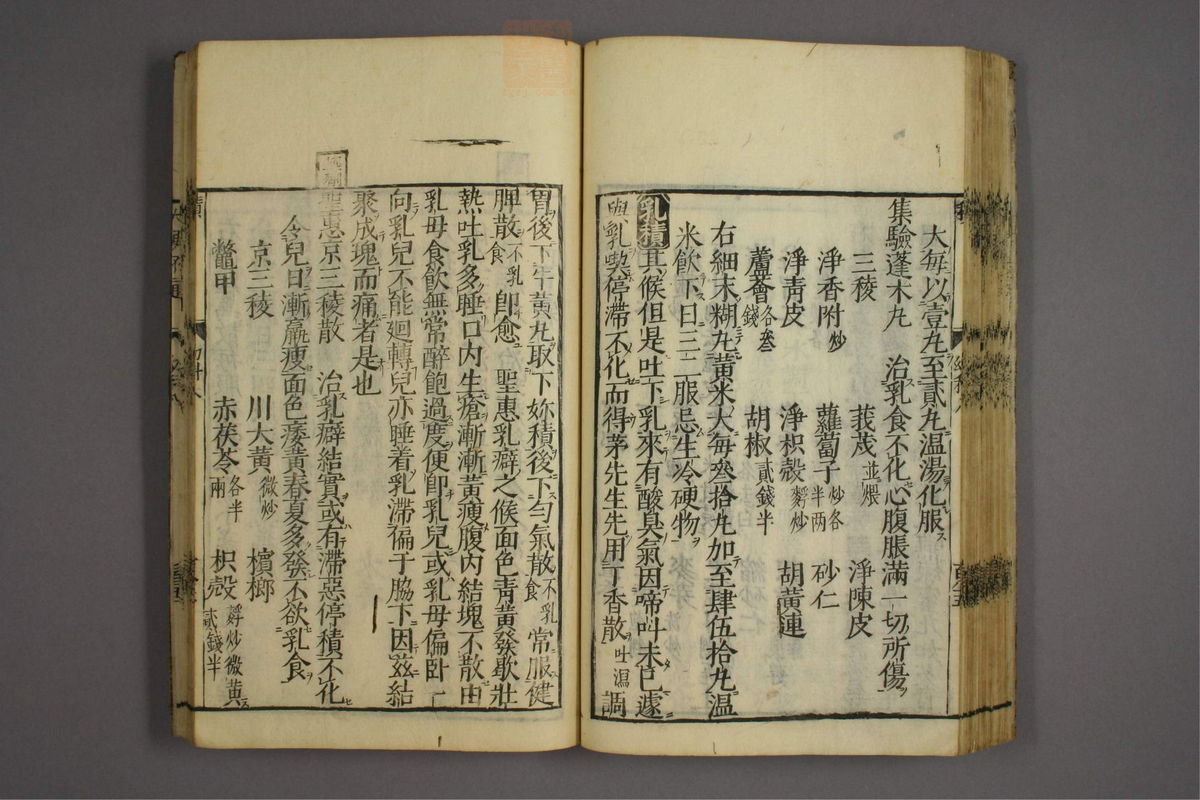 大每以壹丸至貳丸温湯化服
集驗蓬木丸 治乳食不化心腹脹滿一切所傷
三稜 莪茂並煨 淨陳皮
淨香附炒 蘿蔔子炒各半两 砂仁
淨青皮 淨枳殼麩炒 胡黃連
蘆薈各叁錢 胡椒貳錢半
右細末糊丸黃米大每叁拾丸加至肆伍拾丸温
米飲下日三二服忌生冷硬物
乳積其候但是吐下乳來有酸臭氣因啼叫未已遽
與乳喫停滯不化而得茅先生先用丁香散吐瀉調
胃後下牛黃丸取下妳積後下勻氣散不乳食常服健
脾散不乳食即愈 聖惠乳癖之候面色青黃發歇壯
熱吐乳多睡口内生瘡漸漸黃瘦腹内結塊不散由
乳母食飲無常醉飽過度便即乳兒或乳母偏卧一
向乳兒不能廻轉兒亦睡着乳滯偏于脇下因兹結
聚成塊而痛者是也
聖惠京三稜散 治乳癖結實或有滯惡停積不化
令兒日漸羸瘦面色痿黃春夏多發不欲乳食
京三稜 川大黃微炒 檳榔
鼈甲 赤茯苓各半兩 枳殼麩炒微黃貳錢半